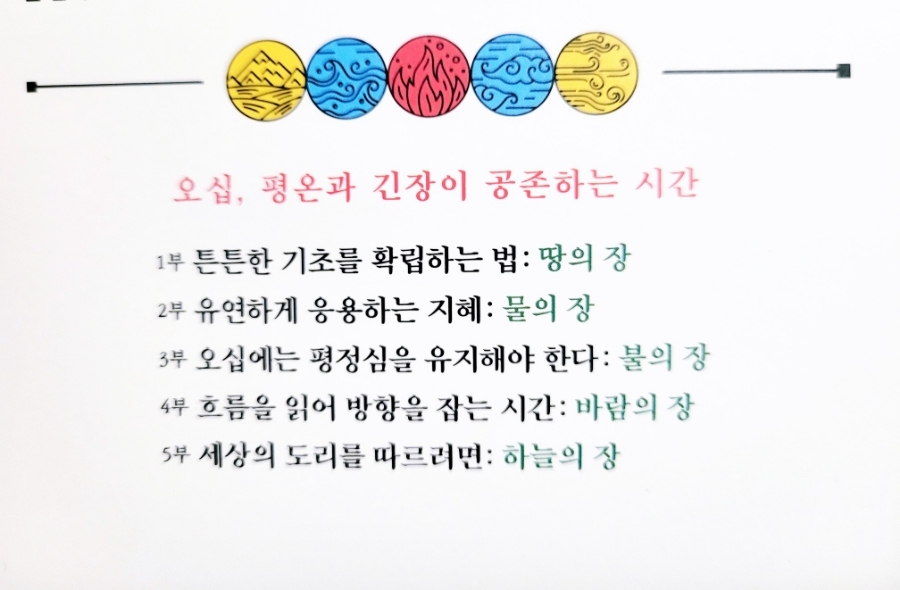 오십, 평온과 긴장이 공존하는 시간
1부 튼튼한 기초를 확립하는 법: 땅의 장
2부 유연하게 응용하는 지혜: 물의 장
3부 오십에는 평정심을 유지해야 한다: 불의 장
4부 흐름을 읽어 방향을 잡는 시간: 바람의 장
5부 세상의 도리를 따르려면: 하늘의 장